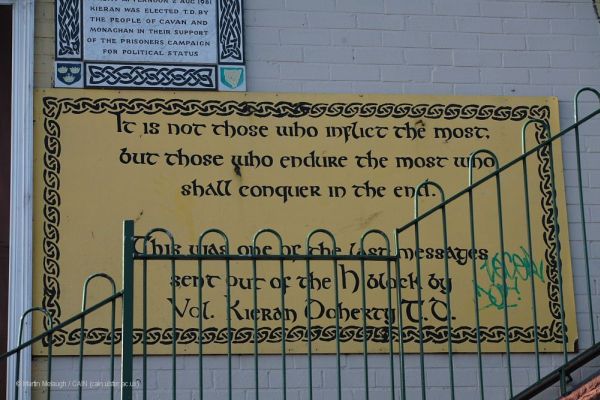 AFTERNOON 2 AUG 1981
KIERAN WAS ELECTED T.D. BY
THE PEOPLE OF CAVAN AND
MONAGHAN IN THEIR SUPPORT
OF THE PRISONERS CAMPAIGN
FOR POLITICAL STATUS
It is not those who inflict the most,
but those who endure the most who
shall conquer in the end.
This was one of the last messages
sent out of the H block by
Vol. Kieran Doherty T.D.
© Martin Melaugh / CAIN (cain.ulster.ac.uk)